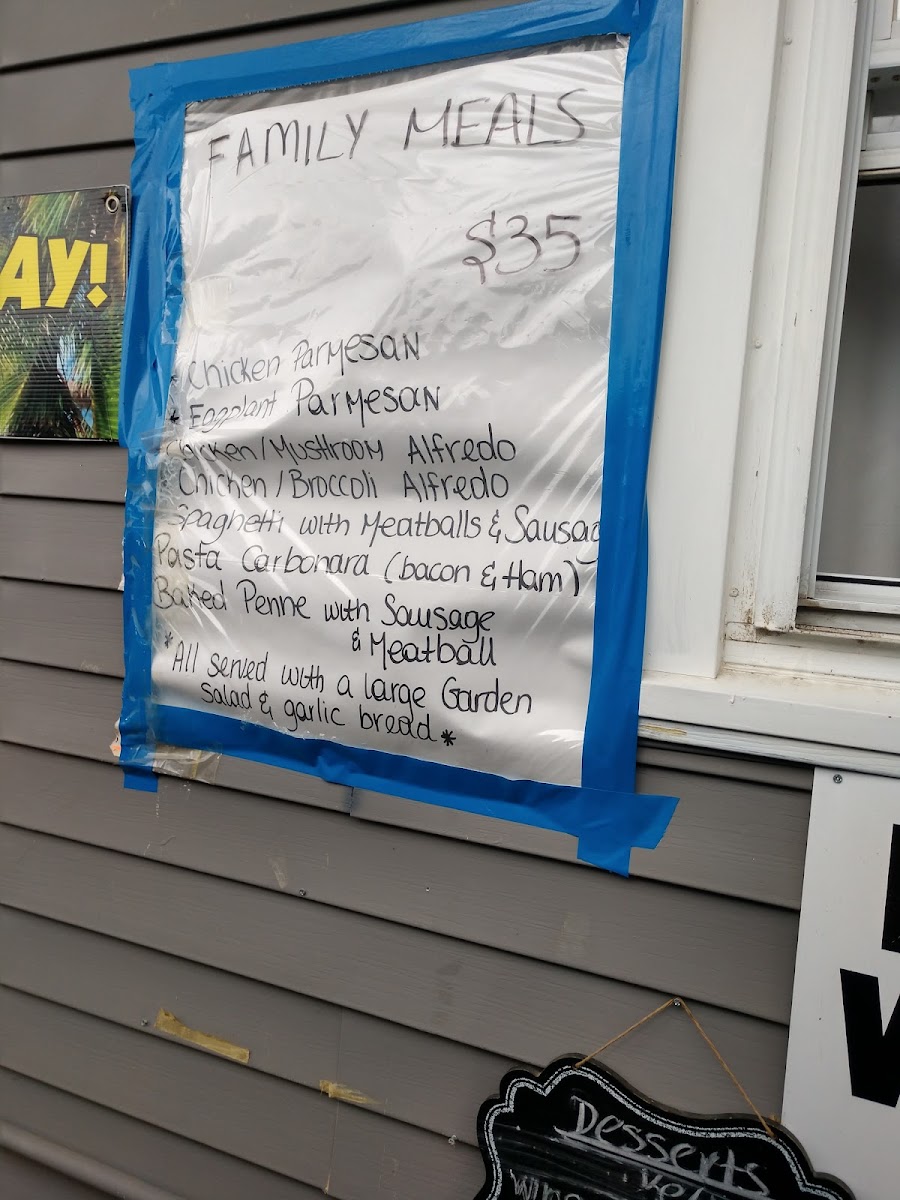 FAMILY MEALS
$35
* Chicken Parmesan
* Eggplant Parmesan
Chicken/Mushroom Alfredo
* Chicken/Broccoli Alfredo
Spaghetti with Meatballs & Sausag
Pasta Carbonara (bacon & Ham)
Baked Penne with Sausage
& Meatball
*All served with a large Garden
Salad & garlic bread*
AY!
Desserts